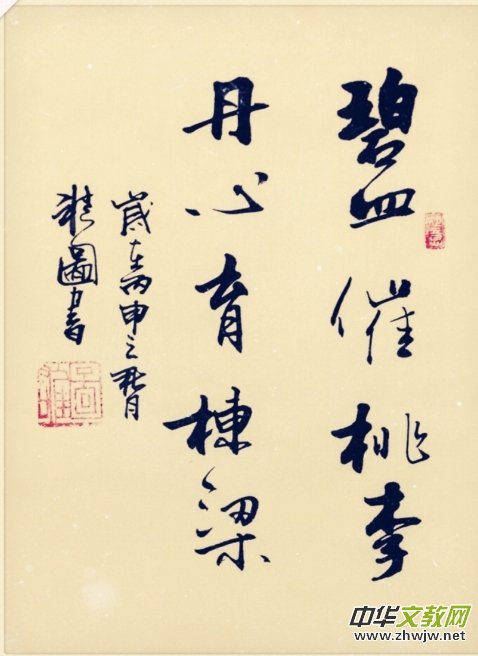 碧血催桃李
丹心育棟梁
歲在丙申之秋月
圖書
中华文教网
www.zhwjw.net